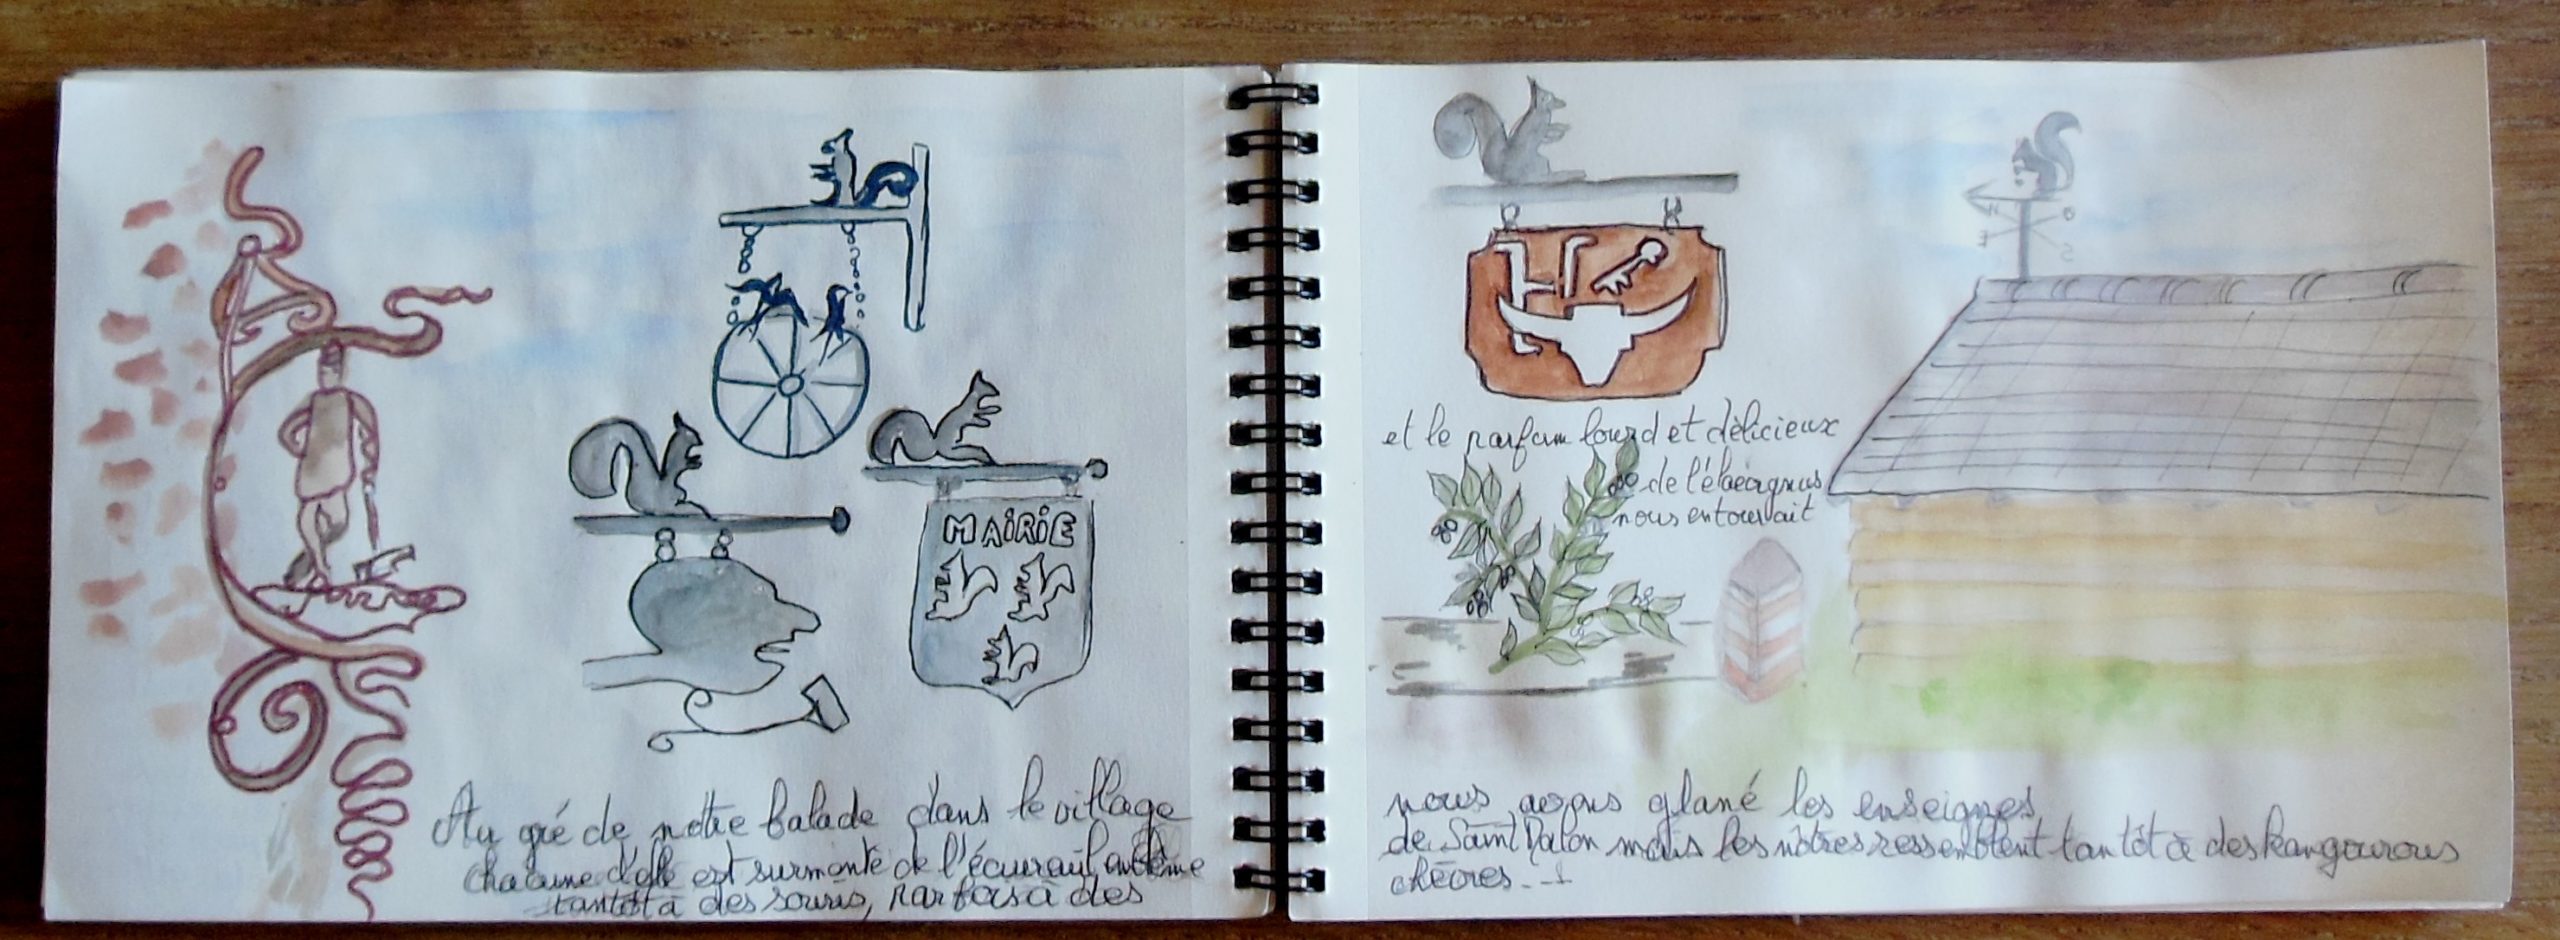 MAIRIE
Au gré de notre balade dans le village
chacune d'elle est surmonté de l'écureuil emblème
tantôt à des souris, parfois à des
N
O
E
S
et le parfum lourd et délicieux
de l'éléagnus
nous entourait
nous avons glané les enseignes
de Saint Malon mais les nôtres ressemblent tantôt à des kangourous
chèvres...